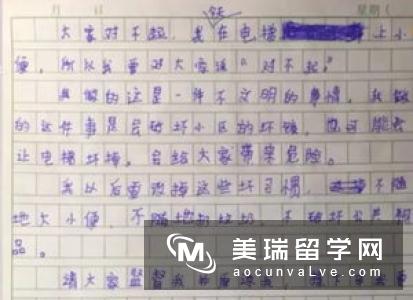 月 日 星期(
大家对不起,我在电梯上小
便,所以我要对大家说“对不起”
我做的这是一件不文明的事情,我做
的这件事是会破坏小区的环境,也可能会
让电梯坏掉。会给大家带来危险。
我以后要改掉这些坏习惯,不随
地大小便,不随地扔垃圾,不破坏公共物
品。
请大家监督我
美瑞留学网
aocunval ve.Com